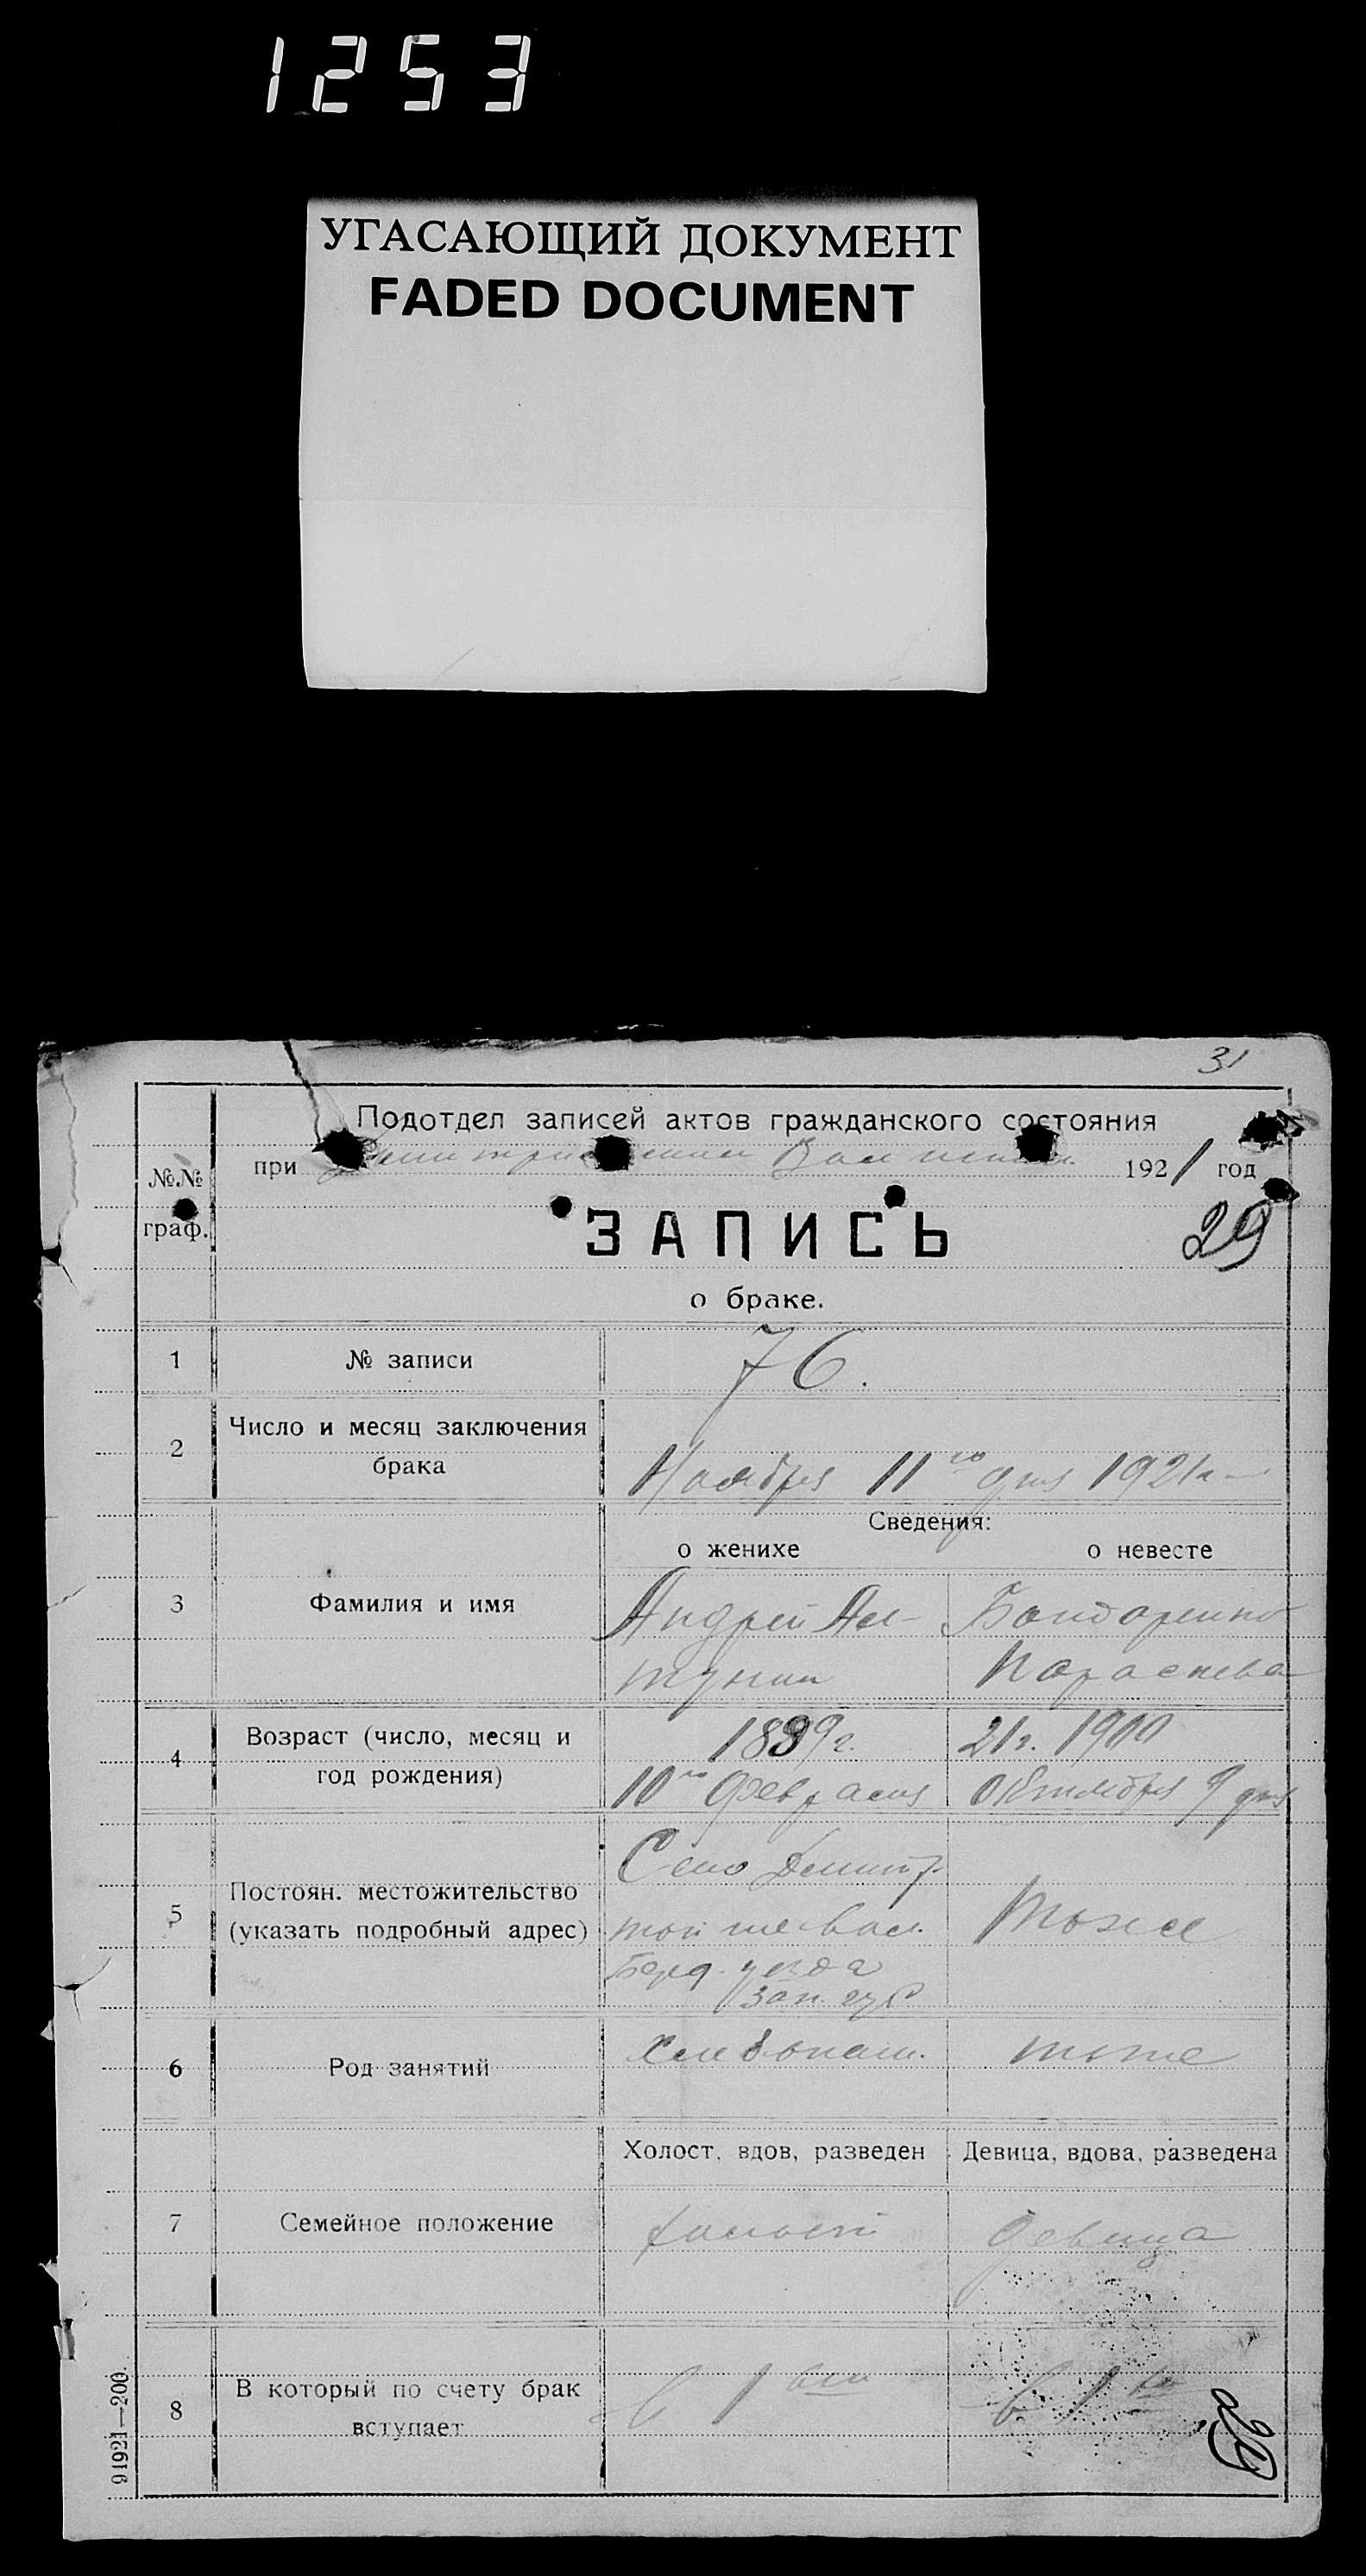 1253
УГАСАЮЩИЙ ДОКУМЕНТ
FADED DOCUMENT
31
Подотдел записей актов гражданского состояния
№№ граф.
при 1921 год
ЗАПИСЬ
29
о браке.
1 № записи 76.
2 Число и месяц заключения брака
Ноября 11го дня 1921г
Сведения:
о женихе о невесте
3 Фамилия и имя
Андрей Бондаренко
Параскева
4 Возраст (число, месяц и год рождения)
1899г. 21г. 1900
10го Февраля Октября 9 дня
5 Постоян. местожительство (указать подробный адрес)
Село Димитр.
той же вол. Тоже
Берд. уезда
Зап. губ
6 Род занятий
Хлебопаш. тоже
Холост, вдов, разведен Девица, вдова, разведена
7 Семейное положение
холост девица
8 В который по счету брак вступает
в 1 в 1
91921—200.